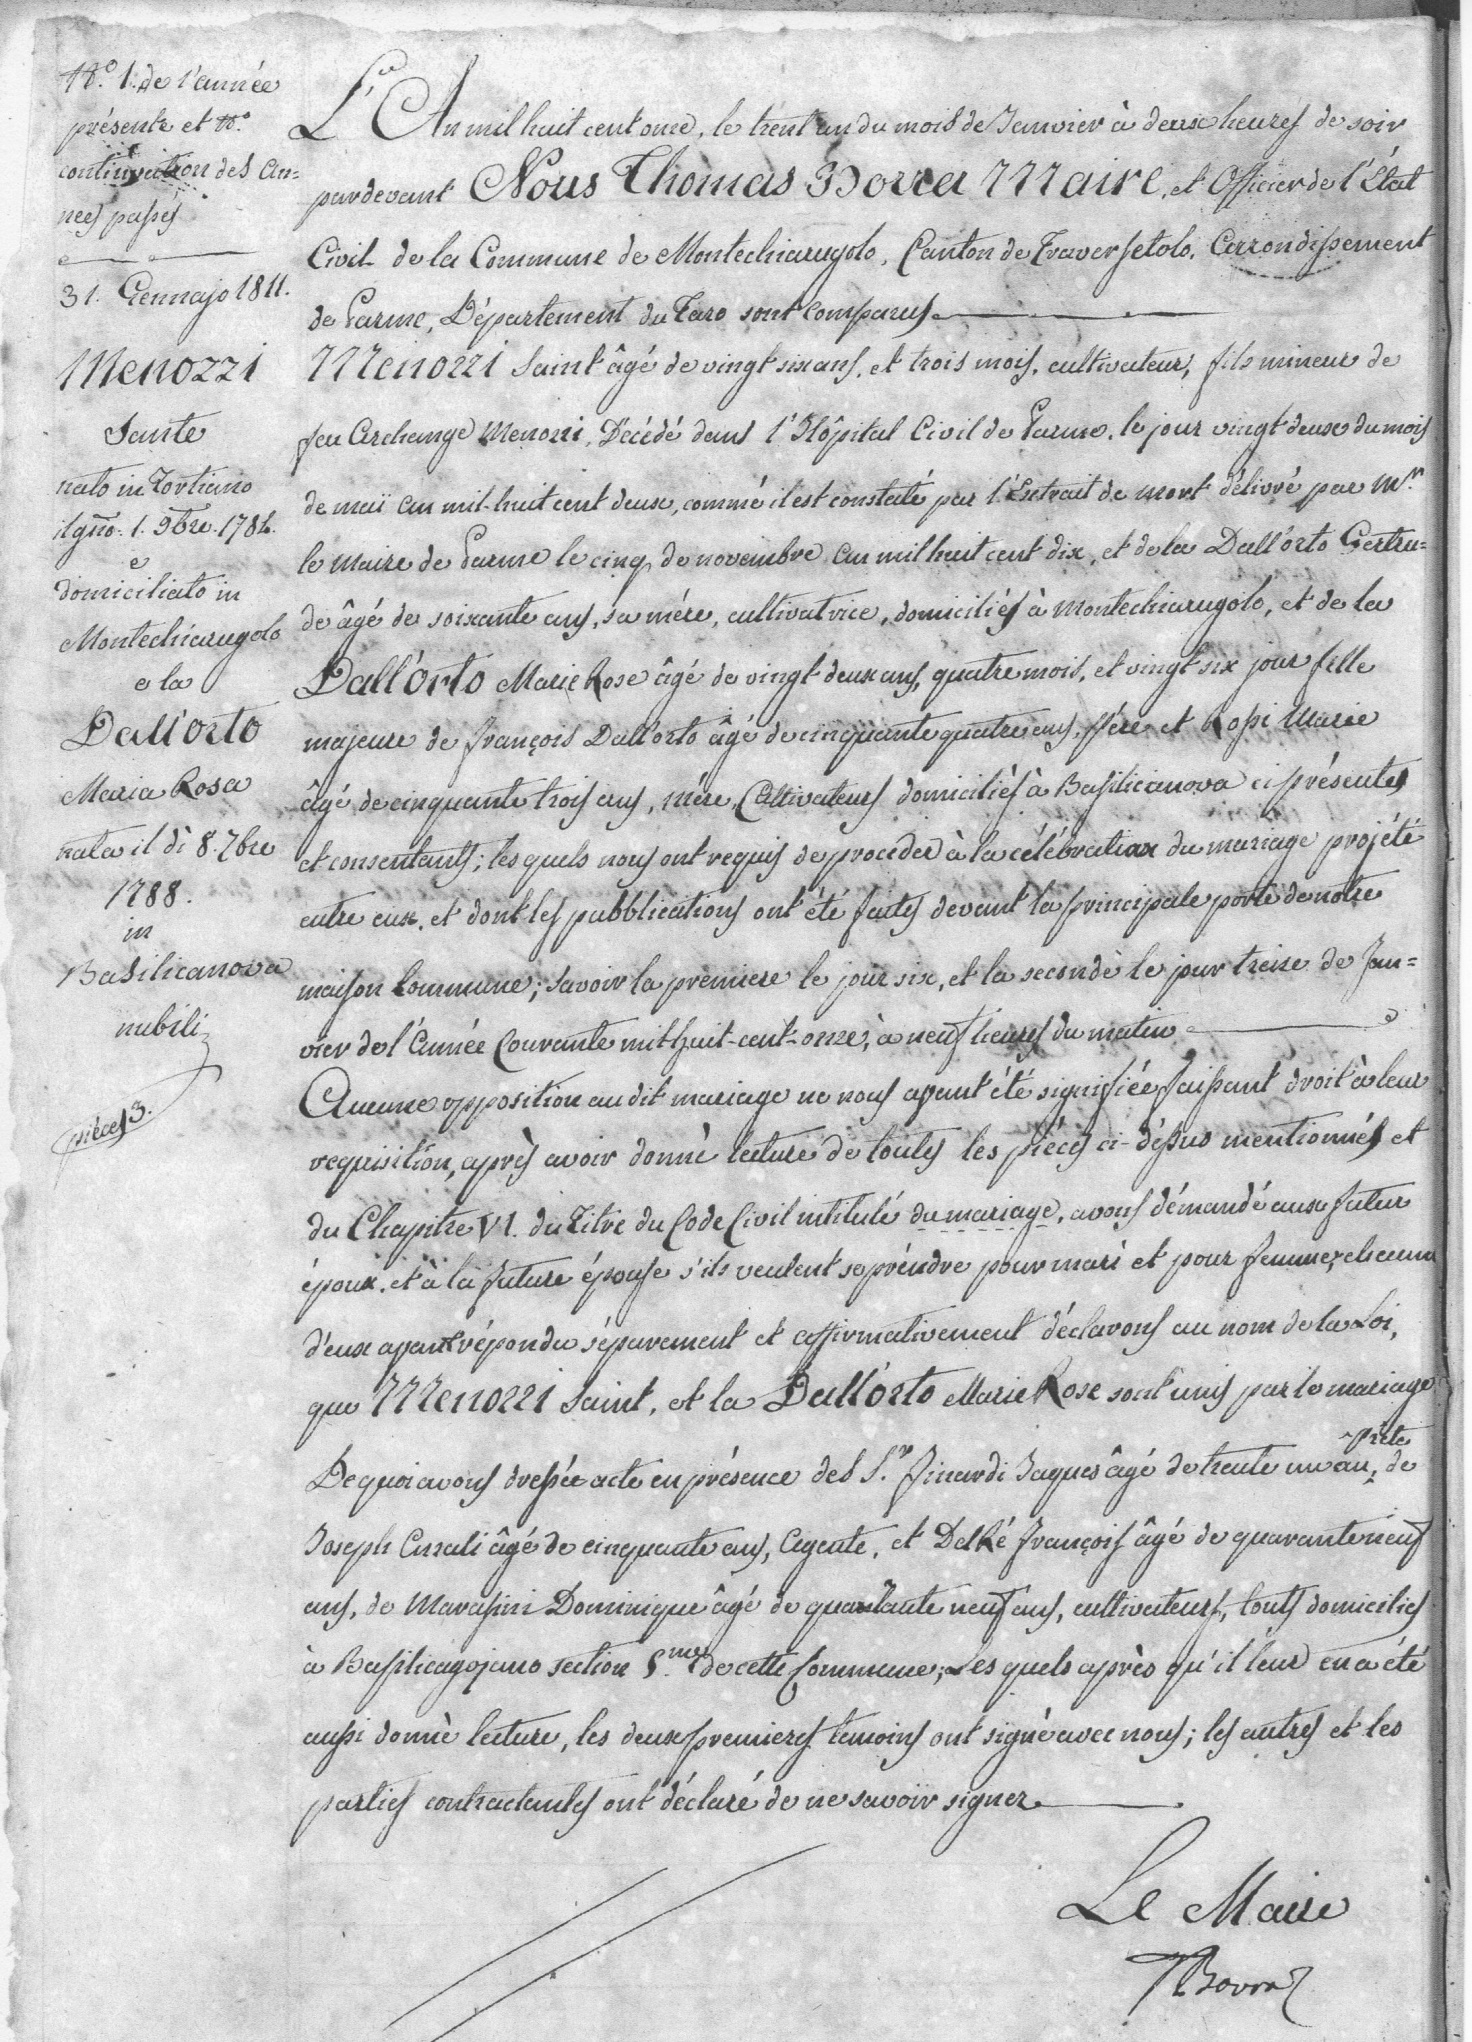 N.º 1. de l'année
présente et N.º
continuation des an=
nées passés
31. Gennajo 1811.
Menozzi
Sante
nato in Tortiano
il gno: 1. 9bre. 1784.
e
domiciliato in
Montechiarugolo
e la
Dall'orto
Maria Rosa
nata il dì 8. 7bre
1788.
in
Basilicanova
nubili
pièces 3.
L'An mil huit cent onze, le trent un du mois de Janvier à deux heures de soir
pardevant Nous Thomas Borra Maire, et Officier de l'État
Civil de la Commune de Montechiarugolo, Canton de Traversetolo, Arrondissement
de Parme, Département du Taro sont comparus
Menozzi Saint âgé de vingt six ans, et trois mois, cultivateur, fils mineur de
feu Archange Menozzi, Décédé dans l'Hôpital Civil de Parme, le jour vingt deux du mois
de maï an mil-huit cent deux, commé il est constaté par l'Extrait de mort délivré par Mr.
le Maire de Parme le cinq de novembre an mil huit cent dix, et de la Dall'orto Gertru=
de âgé de soixante ans, sa mére, cultivatrice, domiciliés à Montechiarugolo, et de la
Dall'orto Marie Rose âgé de vingt deux ans, quatre mois, et vingt six jour fille
majeure de françois Dall'orto âgé de cinquante quatre ans, Pére et Rossi Marie
âgé de cinquante trois ans, mére, Cultivateurs domiciliès à Basilicanova ci présentes
et consentants; les quels nous ont requis de proceder à la célébration du mariage projété
entre eux, et dont les pubblications ont été faites devant la principale porte de notre
maison Commune; savoir la premiere le jour six, et la secondè le jour treize de Jan=
vier de l'Année Courante mil-huit-cent-onze, à neuf heures du matin
Aucune opposition au dit mariage ne nous ayant été signifiée faissant droit à leur
requisition, après avoir donnè lecture de toutes les piéces ci-déssus mentionnés et
du Chapitre VI. du Titre du Code Civil intitulé du mariage, avons démandé aux futur
époux, et à la future épouse s'ils veulent se préndre pour mari et pour femme, chacun
d'eux ayant répondu séparement et affirmativement déclarons au nom de la Loi,
que Menozzi Saint, et la Dall'orto Marie Rose sont unis par le mariage
Prete
De quoi avons dressée acte en présence des Sr. Finardi Jaques âgé de trente un an, de
Joseph Curali âgé de cinquante ans, Agente, et Delké françois âgé de quarante neuf
ans, de Marassini Dominique âgé de quarante neuf ans, cultivateurs, touts domiciliés
à Basilicagojano section 5.me de cette Commune; Les quels après qu'il leur en a été
aussi donnè lecture, les deux premieres temoins ont signé avec nous; les autres et les
parties contractantes ont déclaré de ne savoir signer
Le Maire
TBorra